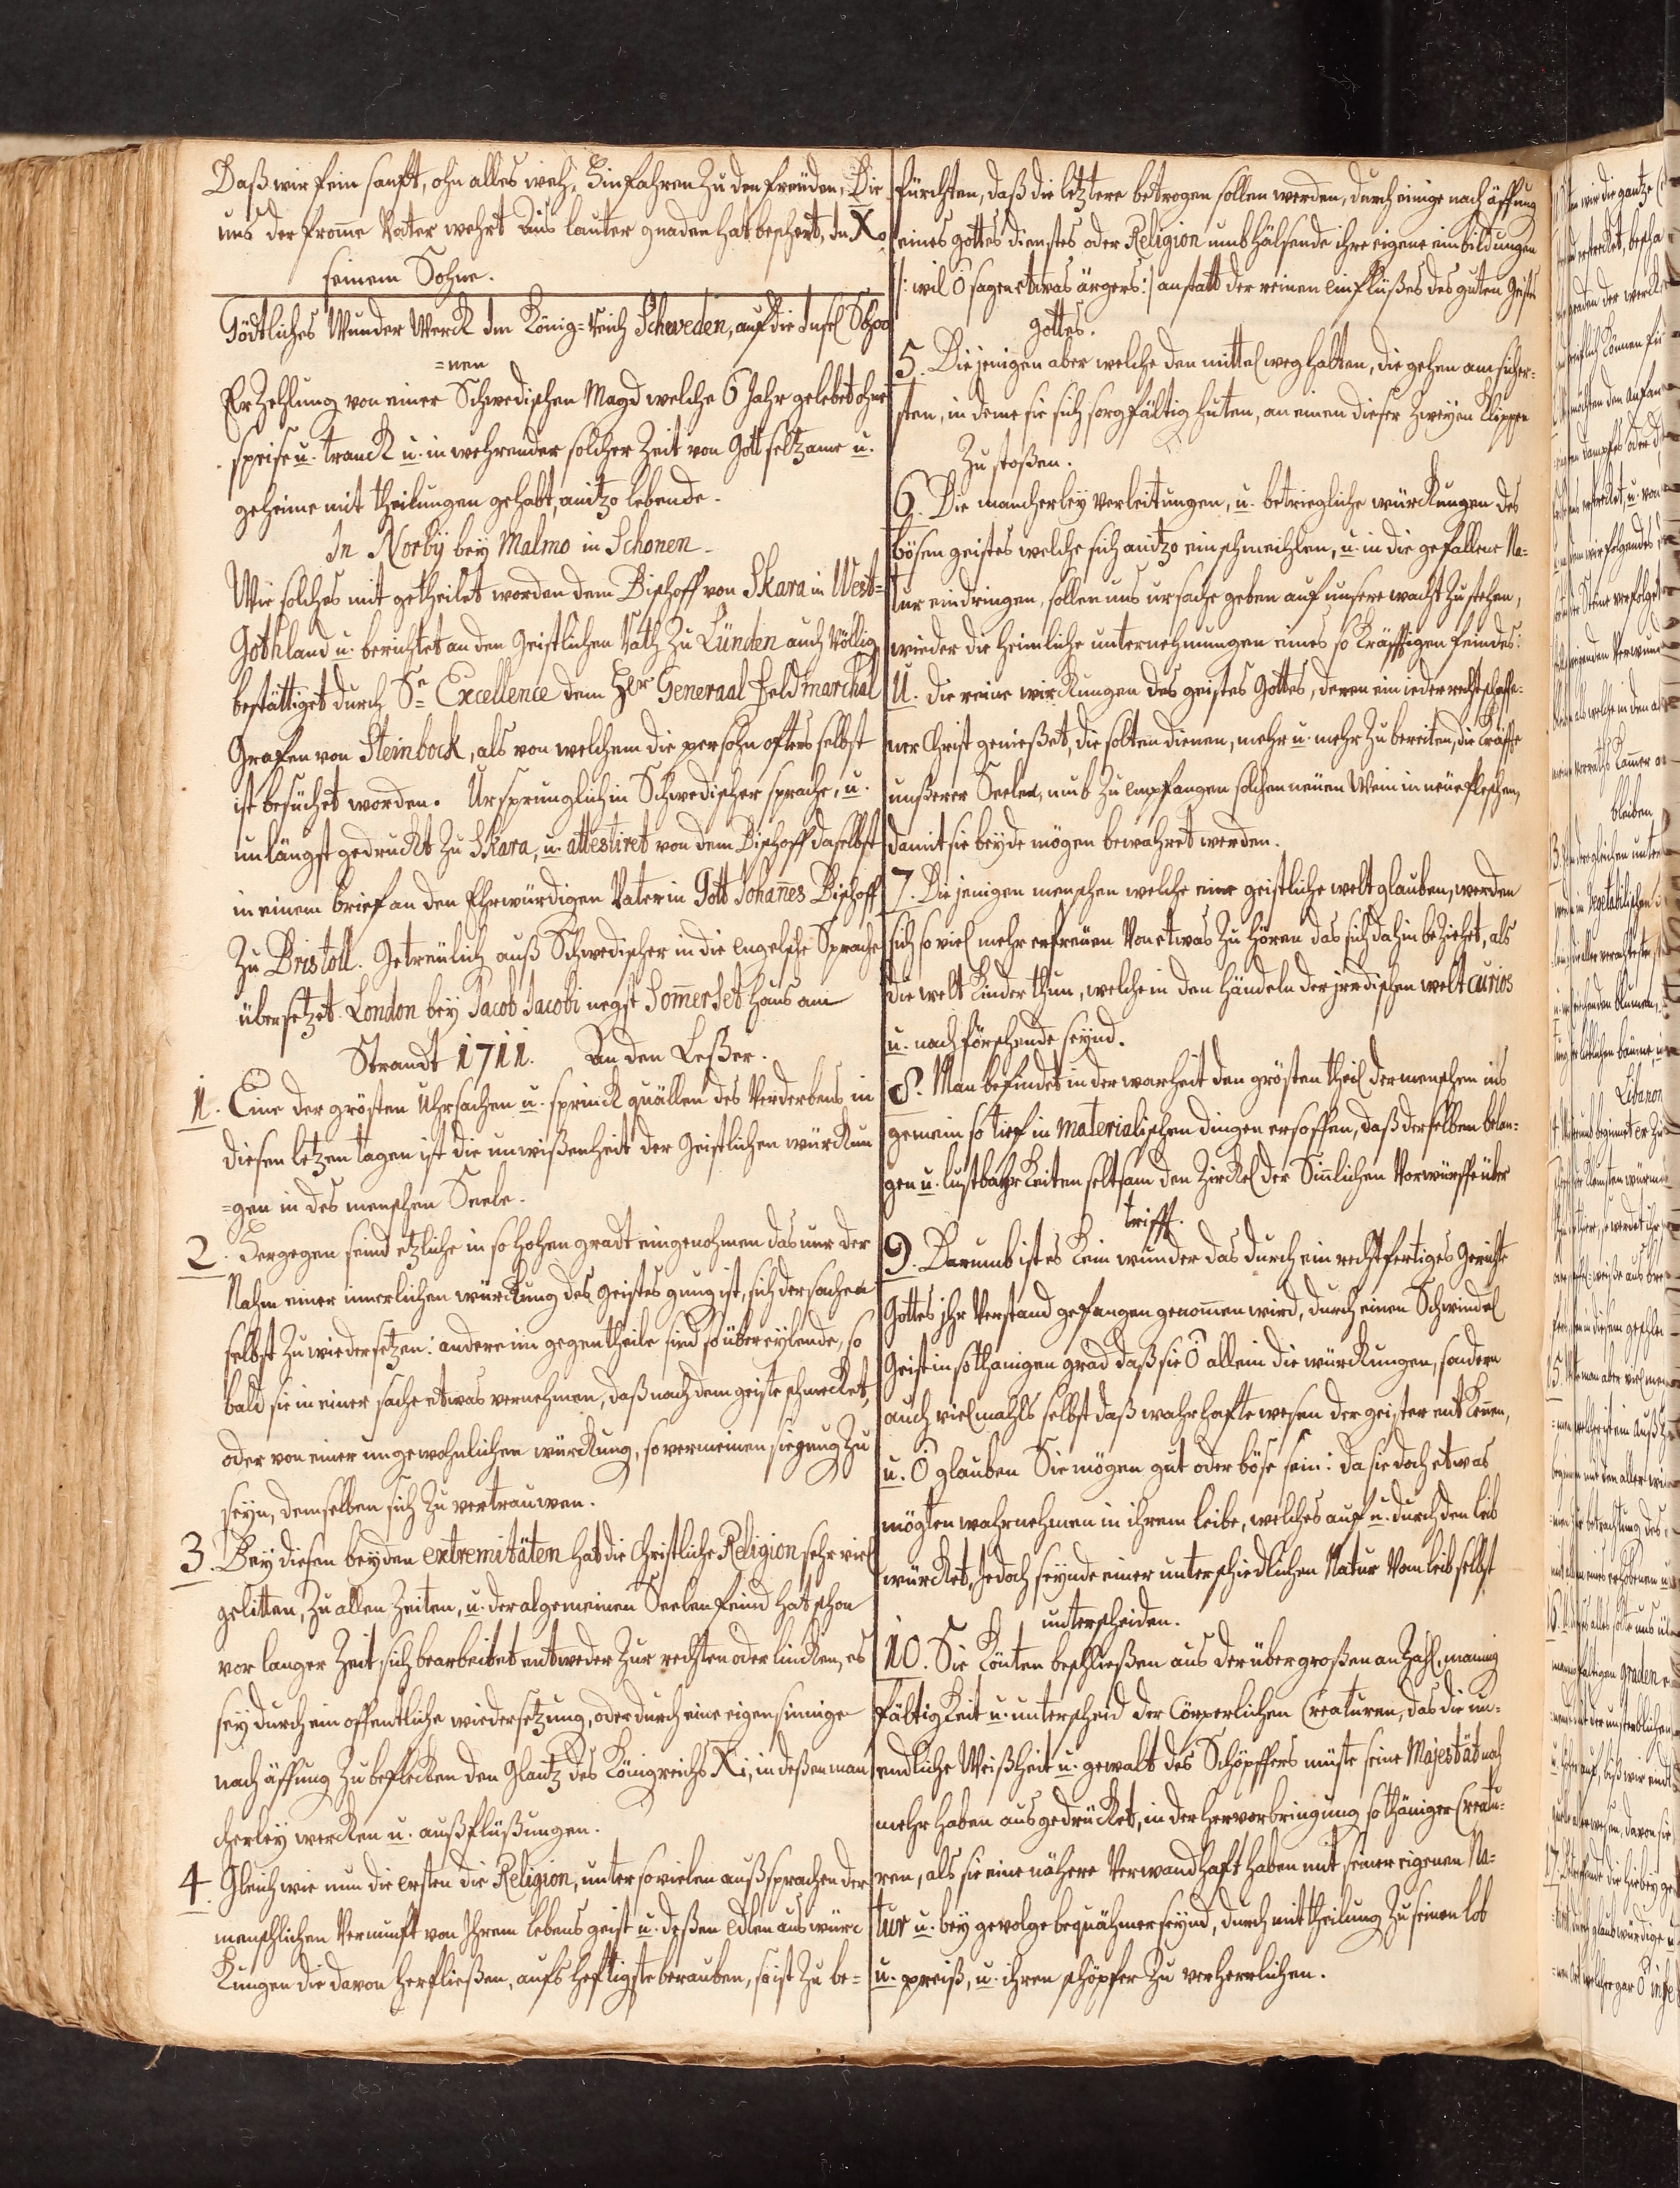 Daß wir fein sanft, ohn alles weh, Hinfahren Zu den freuden, Die
uns der fromme Vater wehrt Aus lauter gnaden hat beschert, In Xo
seinem Sohne.
Göttliches Wunder Werck Im König=Reich Schweden, auf die Insel Schoo
=nen
ErZehlung von einer Schwedischen Magd welche 6 Jahr gelebet ohne
speise u. tranck u. in wehrender solcher Zeit von Gott seltzame u.
geheime mit theilungen gehabt, anitzo lebende.
In Norbÿ beÿ Malmo in Schonen.
Wie solches mit getheilet worden dem Bischoff von Skara in West=
Gothland u. berichtet an den Geistlichen Rath Zu Lünden auch Völlig
bestättiget durch Se Excellence dem Hr Generaal Feldmarchal
Grafen von Steinbock, als von welchem die persohn offters selbst
ist besüchet worden. Ursprunglich in Schwedischer sprache, u.
unlängst gedruckt Zu Skara, u. attestiret von dem Bischoff daselbst
in einem brief an den Ehrwürdigen Vater in Gott Johannes Bischoff
Zu Bristoll. Getreülich auß Schwedischer in die Engelsche Sprache
übersetzet. London beÿ Jacob Jacobi negst Sommerset haus am
Strandt 1711. An den Leßer.
1. Eine der grösten Uhrsachen u. sprinck quällen des Verderbens in
diesen letzen tagen ist die unwißenheit der Geistlichen würckun
=gen in des menschen Seele.
2. Hergegen seind etzliche in so hohen gradt eingenohmen das nur der
Nahm einer innerlichen würckung des Geistes gnug ist, sich der sachen
selbst Zu wiedersetzen: andere im gegentheile sind so übereÿlende, so
bald sie in einer sache etwas vernehmen, daß nach dem geiste schmecket,
oder von einer ungewohnlichen würckung, so vermeinen sie gnug Zu
seÿn, demselben sich Zu vertrauwen.
3 Beÿ diesen beÿden extremitäten hat die Christliche Religion sehr viel
gelitten, Zu allen Zeiten, u. der algemeinen Seelen feind hat schon
vor langer Zeit sich bearbeitet entweder Zur rechten oder lincken, es
seÿ durch ein offentliche wiedersetzung, oder durch eine eigensinnige
nach äffung Zu beflecken den Glantz des Königreichs Xi, in deßen man
cherleÿ wercken u. außflüßungen.
4. Gleich wie nun die ersten die Religion, unter so vielen außsprachen der
menschlichen Vernunft von Ihrem lebens geist u. deßen edlen aus würc
kungen die davon herfließen, aufs hefftigste berauben, so ist Zu be=
fürchten, daß die letztere betrogen sollen werden, durch einige nach äffung
eines gottes dienstes oder Religion umbhälsende ihre eigene einbildungen
/: wil O sagen etwas ärgers :/ anstatt der reinen einflüßes des guten Geistes
gottes.
5. Die jenigen aber welche den mittel weg halten, die gehen am sicher=
sten, in deme sie sich sorgfältig huten, an einen dieser Zweÿen Klippen
Zu stoßen.
6. Die mancherleÿ verleitungen, u. betriegliche würckungen des
bösen geistes welche sich anitzo einschmeichlen, u. in die gefallene Na=
tur eindringen, sollen uns ursache geben auf unsere wacht Zu stehen,
wieder die heimliche unternehmungen eines so kräfftigen feindes:
U. die reine wirckungen des geistes Gottes, deren ein ieder rechtschaffe=
ner Christ genießet, die solten dienen, mehr u. mehr Zu bereiten, die kräffte
unßerer Seelen, umb Zu empfangen solchen neüen Wein in neüe fleschen,
damit sie beÿde mögen bewahret werden.
7. Die jenigen menschen welche eine geistliche welt glauben, werden
sich so viel mehr erfreüen Von etwas Zu hören das sich dahin beziehet, als
die welt kinder thun, welche in den händeln der jrrdischen welt curios
u. nach förschende seÿnd.
8. Man befindet in der warheit den grösten theil der menschen ins
gemein so tief in materialischen dingen ersoffen, daß derselben belan=
gen u. lustbahrkeiten seltsam den Zirckel der Sinnlichen Vorwürffe über
trifft.
9. Darumb ist es kein wunder das durch ein rechtfertiges Gerichte
Gottes jhr Verstand gefangen genommen wird, durch einen Schwindel
Geist in sothanigen grad daß sie O allein die würckungen, sondern
auch vielmahls selbst daß wahrhaffte wesen der geister entkennen,
u. O glauben Sie mögen gut oder böse sein: da sie doch etwas
mögten wahrnehmen in ihrem leibe, welches auf u. durch den leib
würcket, Jedoch seÿnde einer unterschiedlichen Natur Vom leib selbst
unterscheiden.
10. Sie könten beschließen aus der übergroßen anzahl, mannig
fältigkeit u. unterscheid der Cörperlichen Creaturen, das die un=
endliche Weißheit u. gewalt des Schöpffers müste seine Majestät noch
mehr haben ausgedrücket, in der hervorbringung sothäniger Creatu=
ren, als sie eine nähere Verwandschafft haben mit seiner eigenen Na=
tur u. beÿ gevolge bequähmer seÿnd, durch mittheilung Zu seinen lob
u. preiß, u. ihren schöpfer Zu verherrlichen.